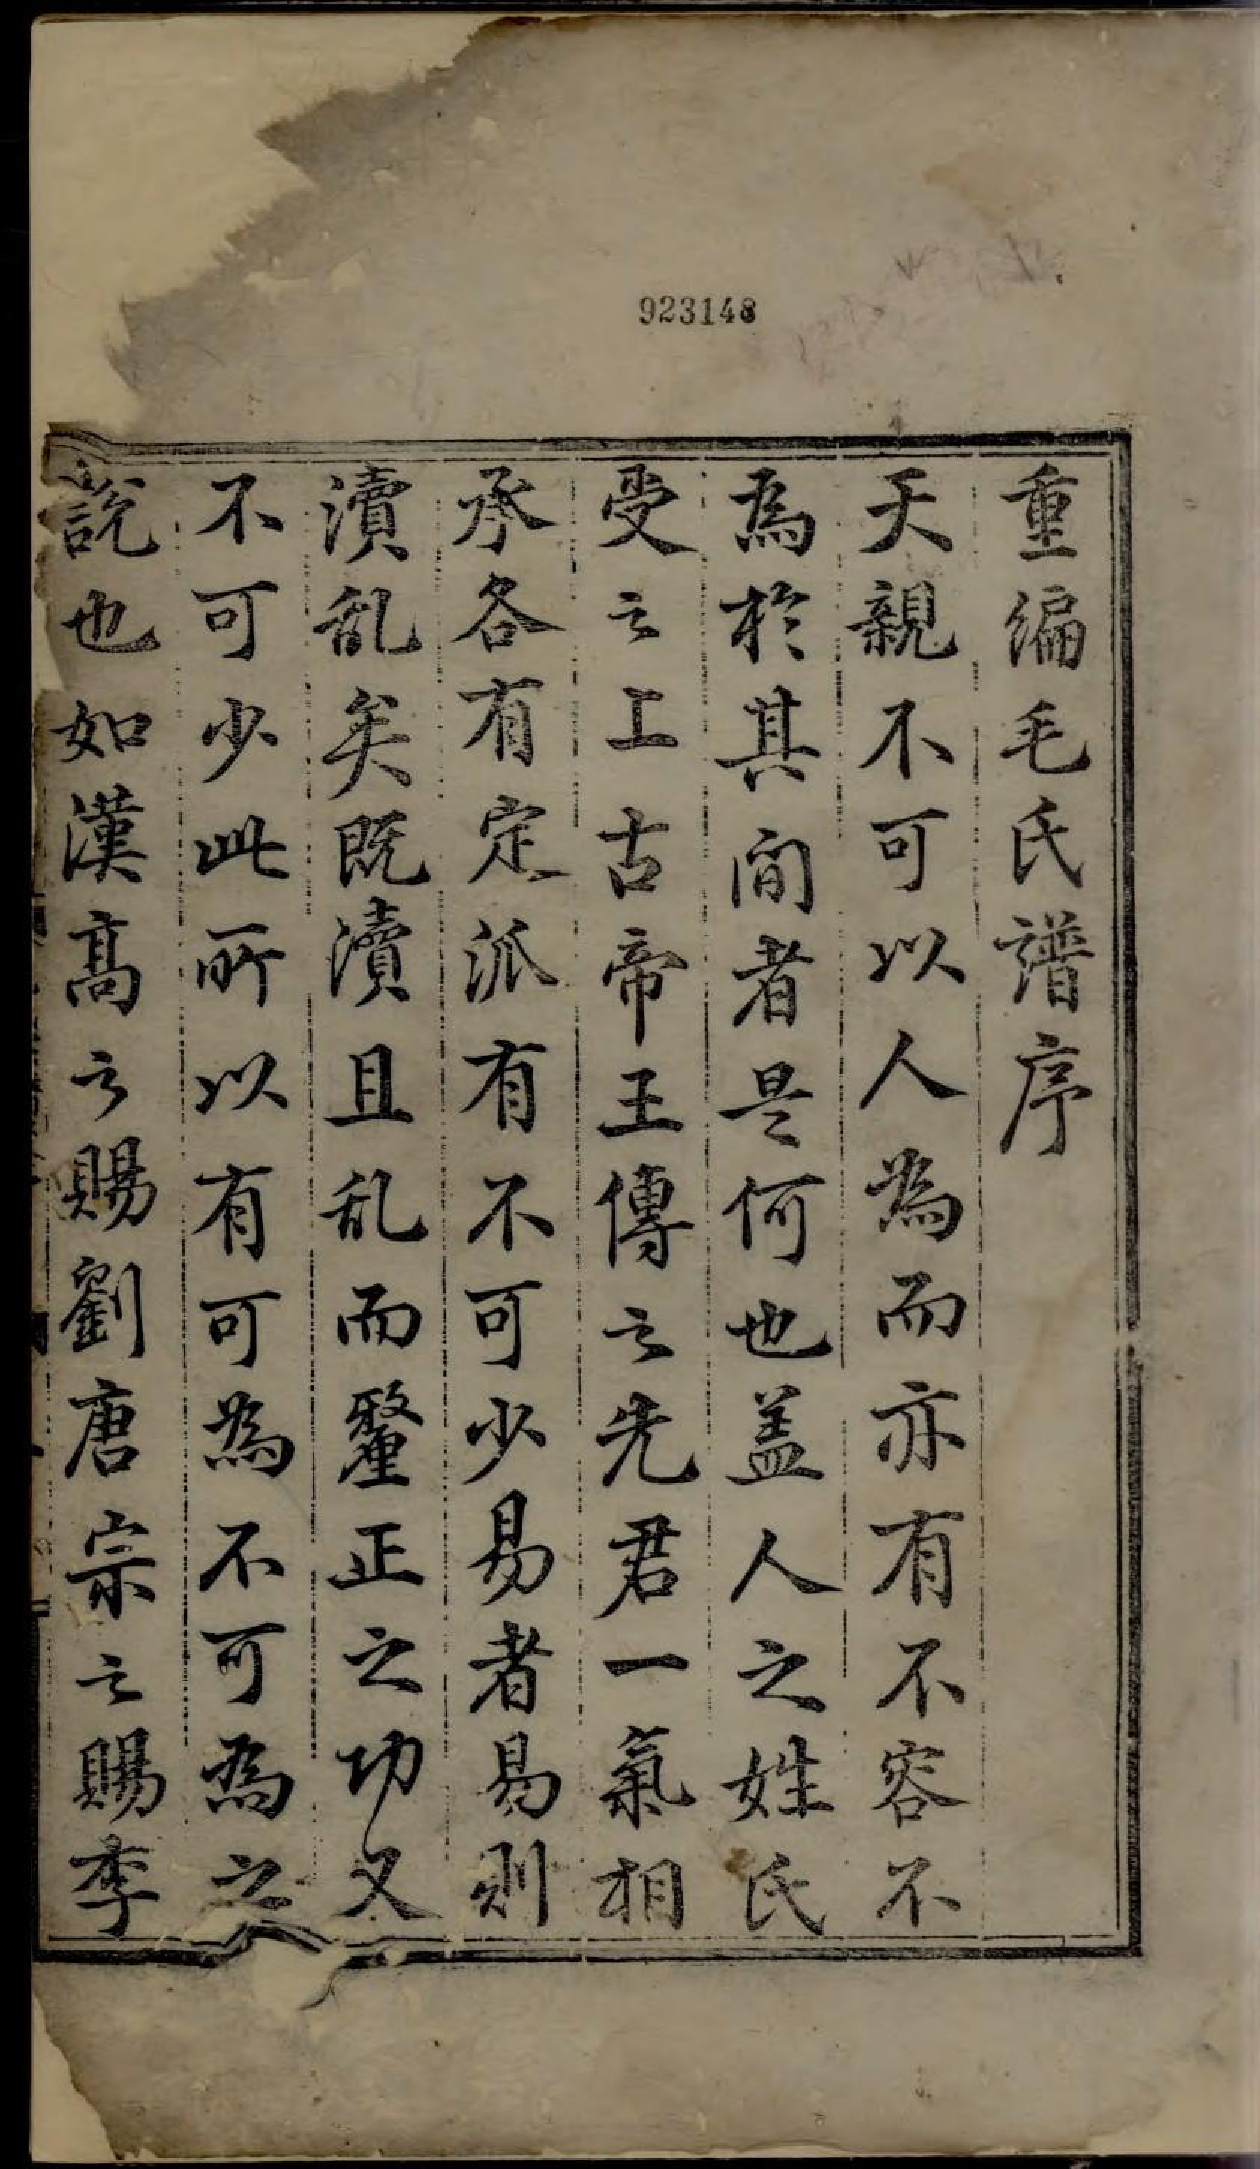 923148
重編毛氏譜序
天親不可以人為而亦有不容不
為於其間者是何也盖人之姓氏
受之上古帝王傳之先君一氣相
承各有定派有不可少易者易則
瀆乱矣既瀆且乱而釐正之功又
不可少此所以有可為不可為之
說也如漢髙之賜劉唐宗之賜李